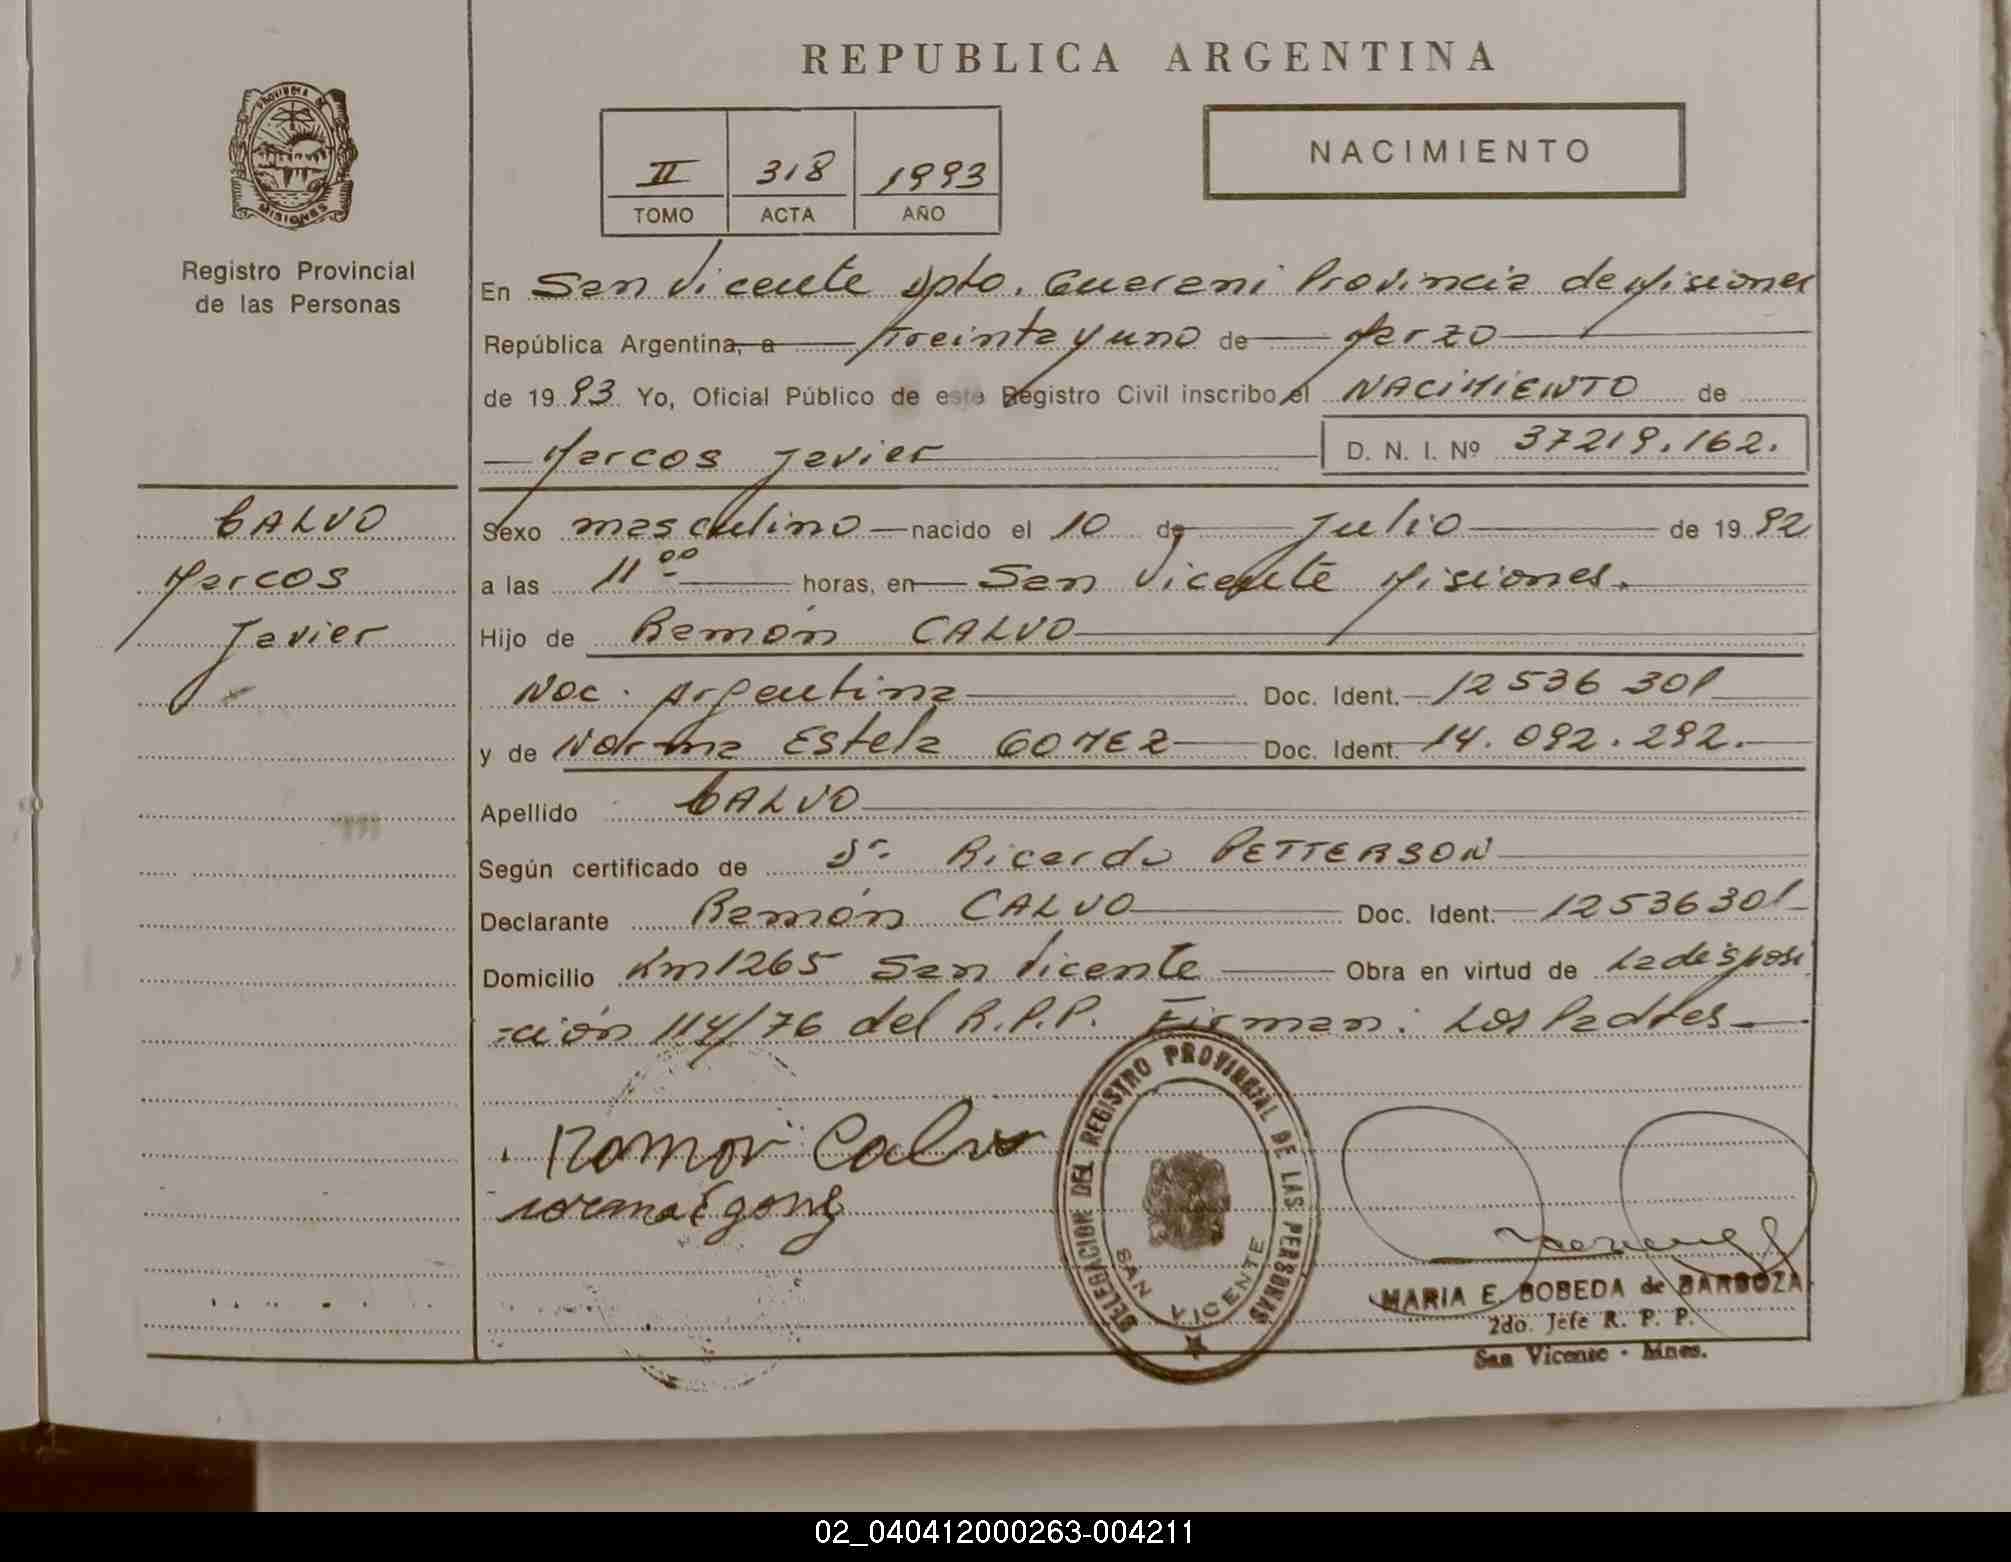 REPUBLICA ARGENTINA
PROVINCIA DE MISIONES
Registro Provincial
de las Personas
II 318 1993
TOMO ACTA AÑO
NACIMIENTO
En San Vicente Dpto. Guarani Provincia de Misiones
República Argentina, a Treinta y uno de Marzo
de 1993 Yo, Oficial Público de este Registro Civil inscribo el NACIMIENTO de
Marcos Javier D. N. I. Nº 37219.162.
CALVO
Marcos
Javier
Sexo masculino nacido el 10 de Julio de 1992
a las 11 00 horas, en San Vicente Misiones.
Hijo de Ramón CALVO
Nac. Argentina Doc. Ident. 12536301
y de Norma Estela GOMEZ Doc. Ident. 14.092.292.
Apellido CALVO
Según certificado de Dr. Ricardo PETTERSON
Declarante Ramón CALVO Doc. Ident. 12536301
Domicilio Km1265 San Vicente Obra en virtud de La disposi
=ción 114/76 del R.P.P. Firman: Los Padres
Ramon Calvo
DELEGACION DEL REGISTRO PROVINCIAL DE LAS PERSONAS
SAN VICENTE
MARIA E. BOBEDA de BARBOZA
2do. Jefe R. P. P.
San Vicente - Mnes.
02_040412000263-004211